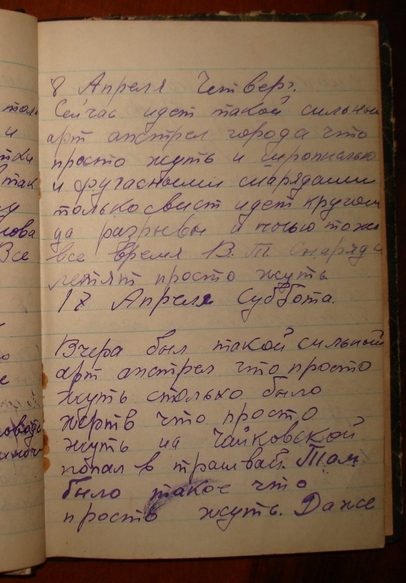 8 Апреля Четверг.
Сейчас идет такой сильный
арт апстрел города что
просто жуть и шрапнелью
и фугасными снарядами
только свист идет кругом
да разрывы и ночью тоже
все время В. Т. Снаряда
летят просто жуть
17 Апреля Суббота.
Вчера был такой сильный
арт апстрел что просто
жуть столько было
жертв что просто
жуть на Чайковской
попал в трамвай. Там
было такое что
просто жуть. Даже
и
Все